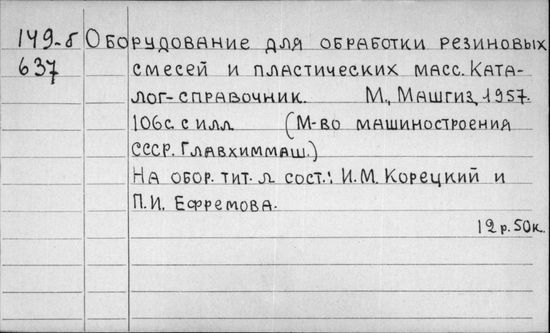 149-б Оборудование для обработки резиновых
637 смесей и пластических масс. Ката-
лог-справочник. М., Машгиз, 1957.
106с. с илл (М-во машиностроения
СССР. Главхиммаш.)
На обор. тит. л. сост.: И.М. Корецкий и
П.И. Ефремова.
12р. 50к.